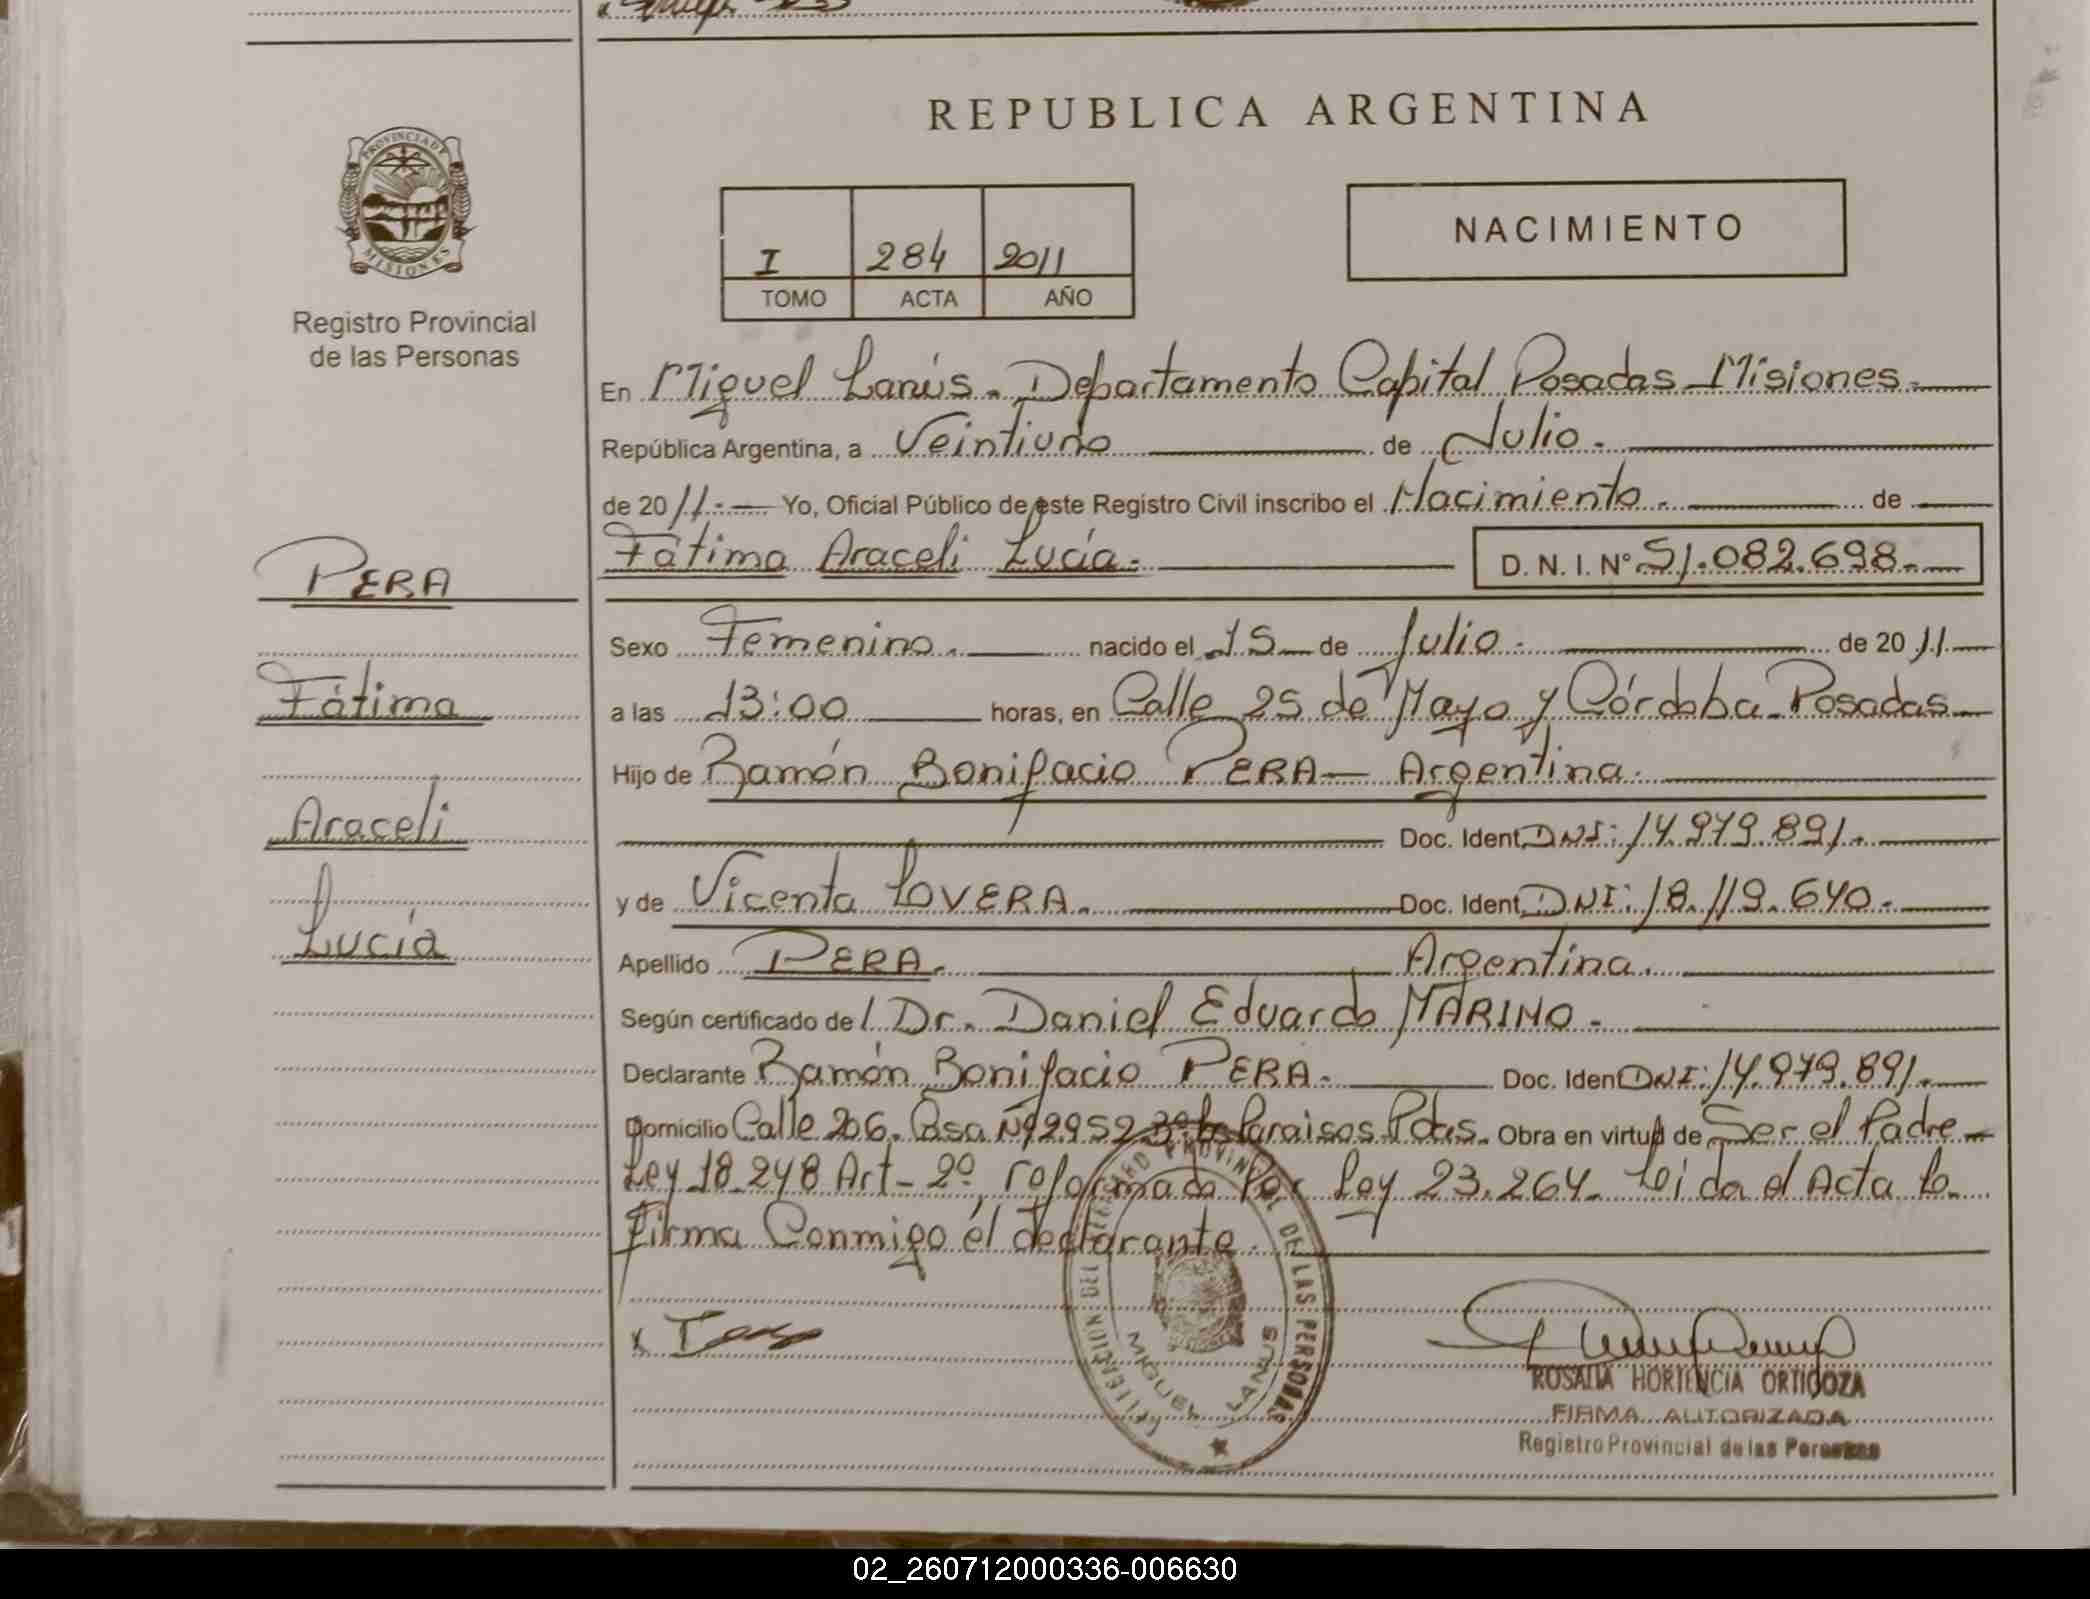 REPUBLICA ARGENTINA
PROVINCIA DE
MISIONES
Registro Provincial
de las Personas
I 284 2011
TOMO ACTA AÑO
NACIMIENTO
En Miguel Lanús. Departamento Capital Posadas Misiones.
República Argentina, a Veintiuno de Julio.
de 2011.- Yo, Oficial Público de este Registro Civil inscribo el Nacimiento. de
Fátima Araceli Lucía.
D. N. I. Nº 51.082.698.
PERA
Fátima
Araceli
Lucía
Sexo Femenino. nacido el 15 de Julio. de 2011.
a las 13:00 horas, en Calle 25 de Mayo y Córdoba Posadas
Hijo de Ramón Bonifacio PERA - Argentina.
Doc. Ident. DNI: 14.979.891.
y de Vicenta LOVERA. Doc. Ident. DNI: 18.119.640.
Apellido PERA. Argentina.
Según certificado de Dr. Daniel Eduardo MARINO.
Declarante Ramón Bonifacio PERA. Doc. Iden DNI: 14.979.891.
Domicilio Calle 206. Casa Nº 2952 Paraisos Pdas. Obra en virtud de Ser el Padre
Ley 18.248 Art- 2º, reformado por Ley 23.264. leida el Acta la
Firma Conmigo el declarante.
DEL REGISTRO PROVINCIAL DE LAS PERSONAS
MIGUEL LANUS
ROSALIA HORTENCIA ORTIGOZA
FIRMA AUTORIZADA
Registro Provincial de las Personas
02_260712000336-006630